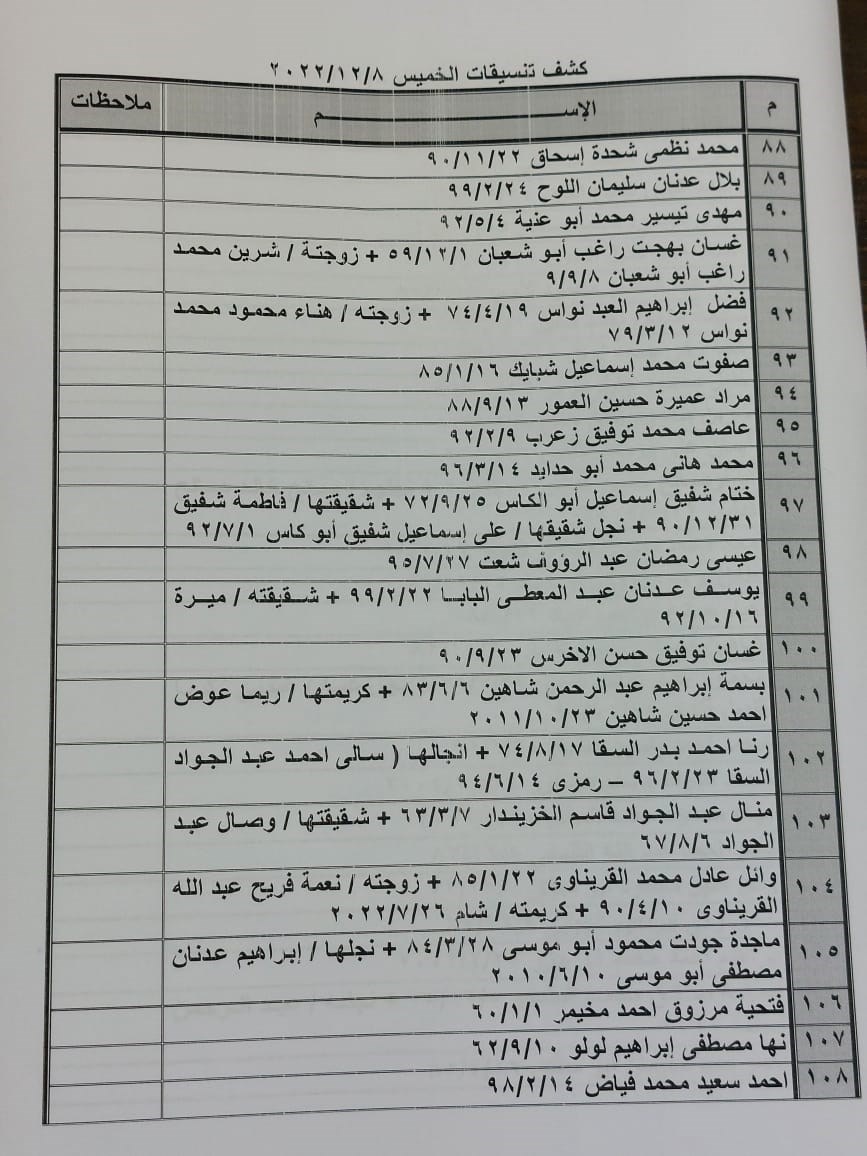 كشف تنسيقات الخميس ٢٠٢٢/١٢/٨
م الإســـــــــــم ملاحظات
٨٨ محمد نظمى شحدة إسحاق ٩٠/١١/٢٢
٨٩ بلال عدنان سليمان اللوح ٩٩/٢/٢٤
٩٠ مهدى تيسير محمد أبو عذية ٩٢/٥/٤
٩١ غسان بهجت راغب أبو شعبان ٥٩/١٢/١ + زوجتة / شرين محمد
راغب أبو شعبان ٩/٩/٨
٩٢ فضل إبراهيم العبد نواس ٧٤/٤/١٩ + زوجته / هناء محمود محمد
نواس ٧٩/٣/١٢
٩٣ صفوت محمد إسماعيل شبايك ٨٥/١/١٦
٩٤ مراد عميرة حسين العمور ٨٨/٩/١٣
٩٥ عاصف محمد توفيق زعرب ٩٢/٢/٩
٩٦ محمد هانى محمد أبو حدايد ٩٦/٣/١٤
٩٧ ختام شفيق إسماعيل أبو الكاس ٧٢/٩/٢٥ + شقيقتها / فاطمة شفيق
٩٠/١٢/٣١ + نجل شقيقها / على إسماعيل شفيق أبو كاس ٩٢/٧/١
٩٨ عيسى رمضان عبد الرؤوف شعت ٩٥/٧/٢٧
٩٩ يوسف عدنان عبد المعطى البابا ٩٩/٢/٢٢ + شقيقته / ميرة
٩٢/١٠/١٦
١٠٠ غسان توفيق حسن الاخرس ٩٠/٩/٢٣
١٠١ بسمة إبراهيم عبد الرحمن شاهين ٨٣/٦/٦ + كريمتها / ريما عوض
احمد حسين شاهين ٢٠١١/١٠/٢٣
١٠٢ رنا احمد بدر السقا ٧٤/٨/١٧ + انجالها ( سالى احمد عبد الجواد
السقا ٩٦/٢/٢٣ – رمزى ٩٤/٦/١٤
١٠٣ منال عبد الجواد قاسم الخزيندار ٦٣/٣/٧ + شقيقتها / وصال عبد
الجواد ٦٧/٨/٦
١٠٤ وائل عادل محمد القريناوى ٨٥/١/٢٢ + زوجته / نعمة فريح عبد الله
القريناوى ٩٠/٤/١٠ + كريمته / شام ٢٠٢٢/٧/٢٦
١٠٥ ماجدة جودت محمود أبو موسى ٨٤/٣/٢٨ + نجلها / إبراهيم عدنان
مصطفى أبو موسى ٢٠١٠/٦/١٠
١٠٦ فتحية مرزوق احمد مخيمر ٦٠/١/١
١٠٧ نها مصطفى إبراهيم لولو ٦٢/٩/١٠
١٠٨ احمد سعيد محمد فياض ٩٨/٢/١٤